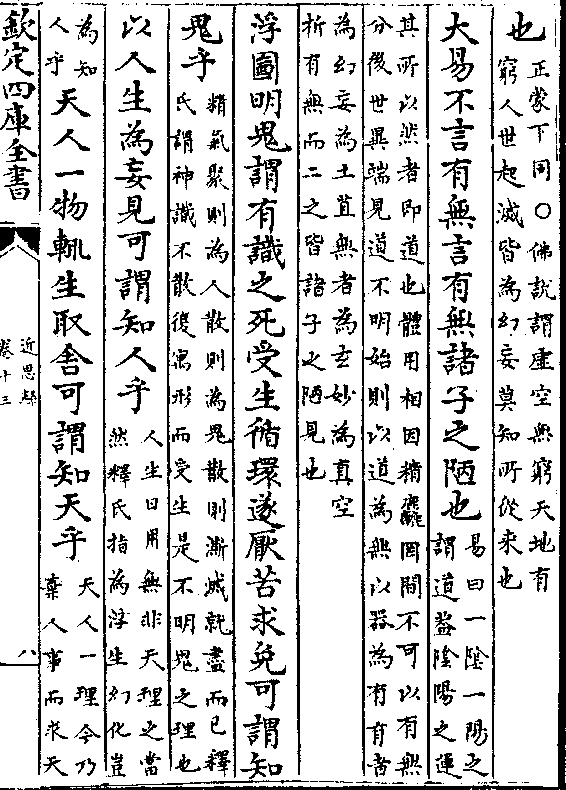 也
正蒙下同○佛說謂虛空無窮天地有
窮人世起滅皆為幻妄莫知所從來也
大易不言有無言有無諸子之陋也
易曰一陰一陽之
謂道盖陰陽之運
其所以然者即道也體用相因精麤罔間不可以有無
分後世異端見道不明始則以道為無以器為有有者
為幻妄為土苴無者為玄妙為真空
析有無而二之皆諸子之陋見也
浮圖明鬼謂有識之死受生循環遂厭苦求免可謂知
鬼乎
精氣聚則為人散則為鬼散則漸滅就盡而已釋
氏謂神識不散復寓形而受生是不明鬼之理也
以人生為妄見可謂知人乎
人生日用無非天理之當
然釋氏指為浮生幻化豈
為知
人乎
天人一物輒生取舍可謂知天乎
天人一理今乃
棄人事而求天
欽定四庫全書
近思錄
卷十三
八